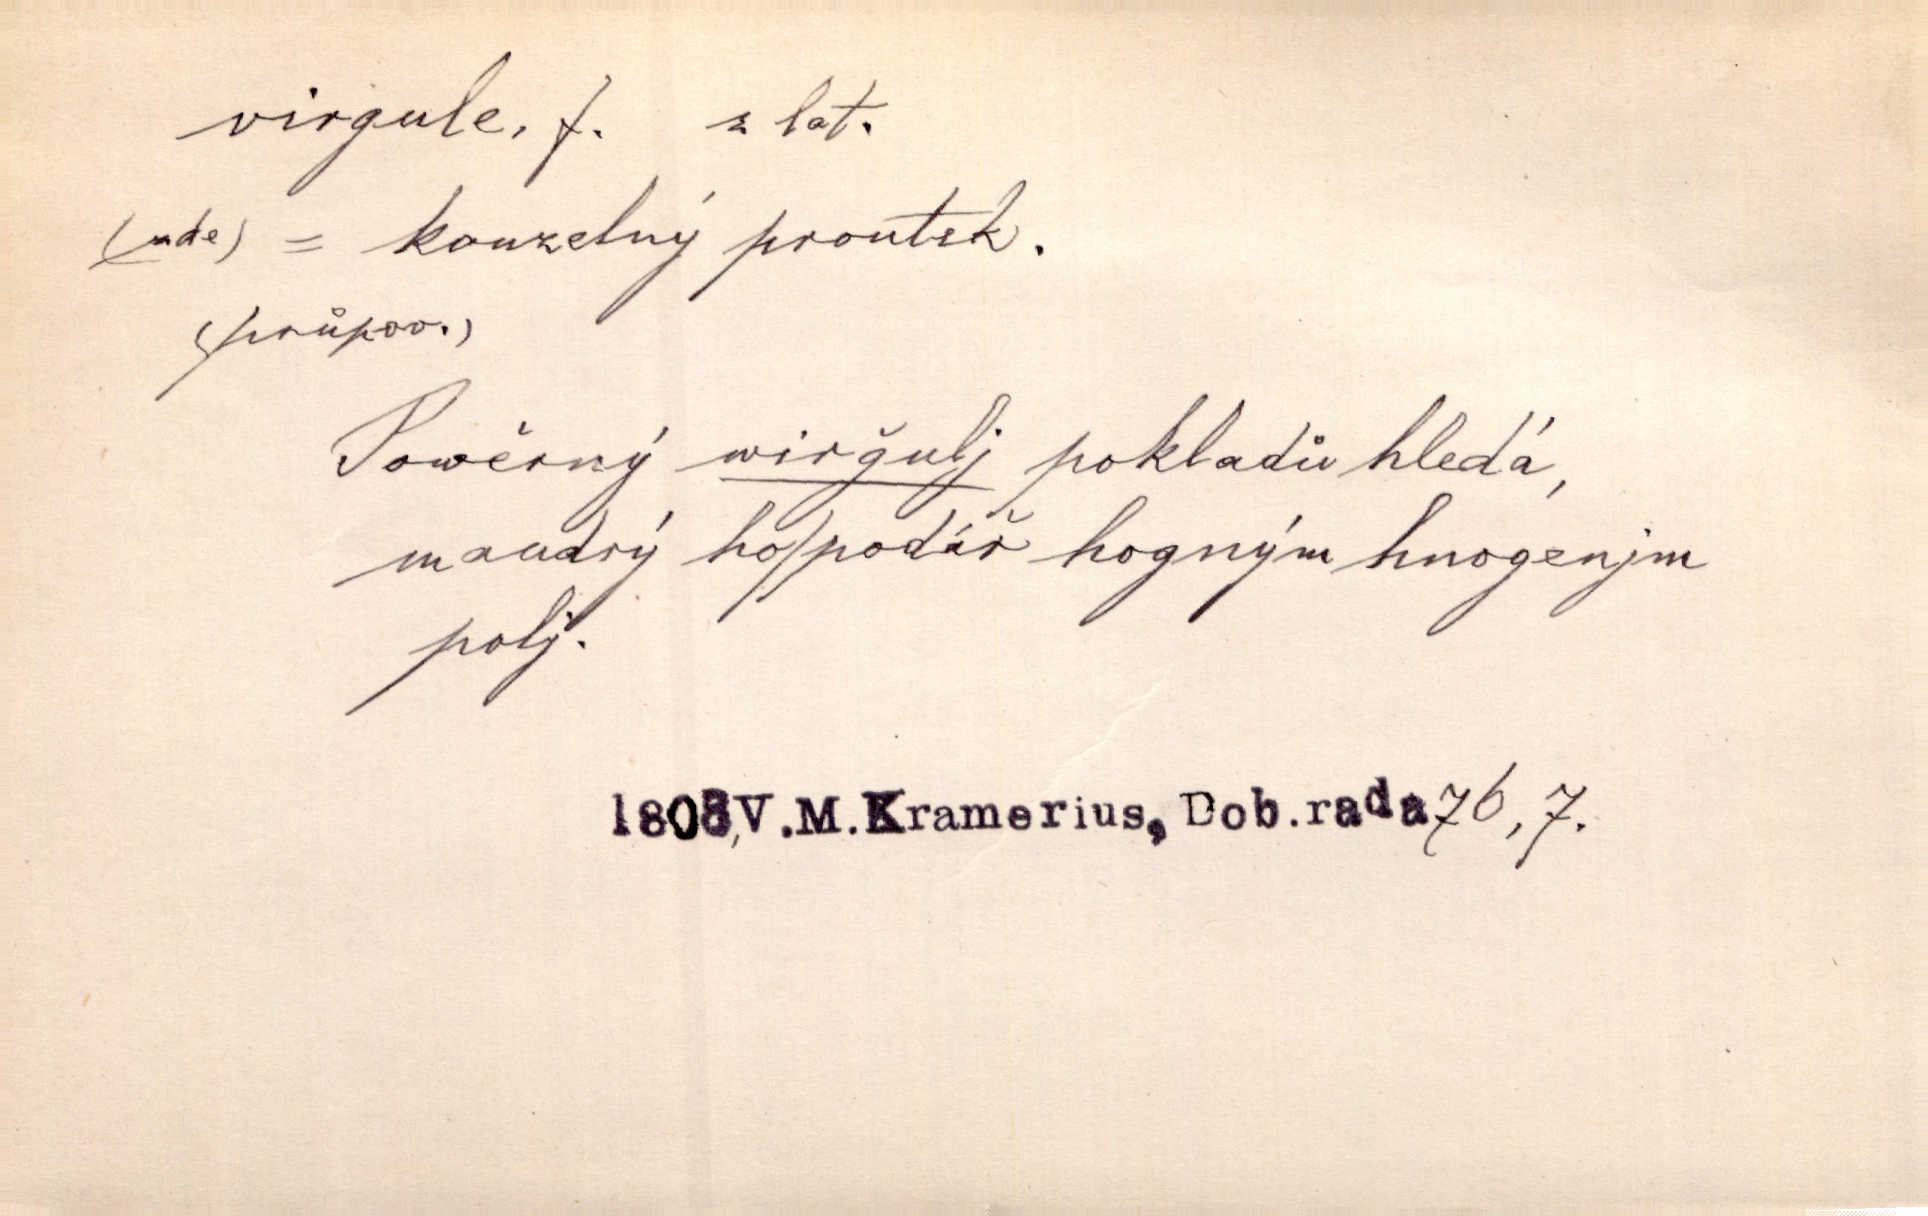 virgule, f. z lat.
(zde) = kouzelný proutek.
(průpov.)
Powěrný wirǧulj pokladů hledá,
maudrý hoſpodář hogným hnogenjm
polj.
1808, V.M.Kramerius, Dob.rada 76, 7.